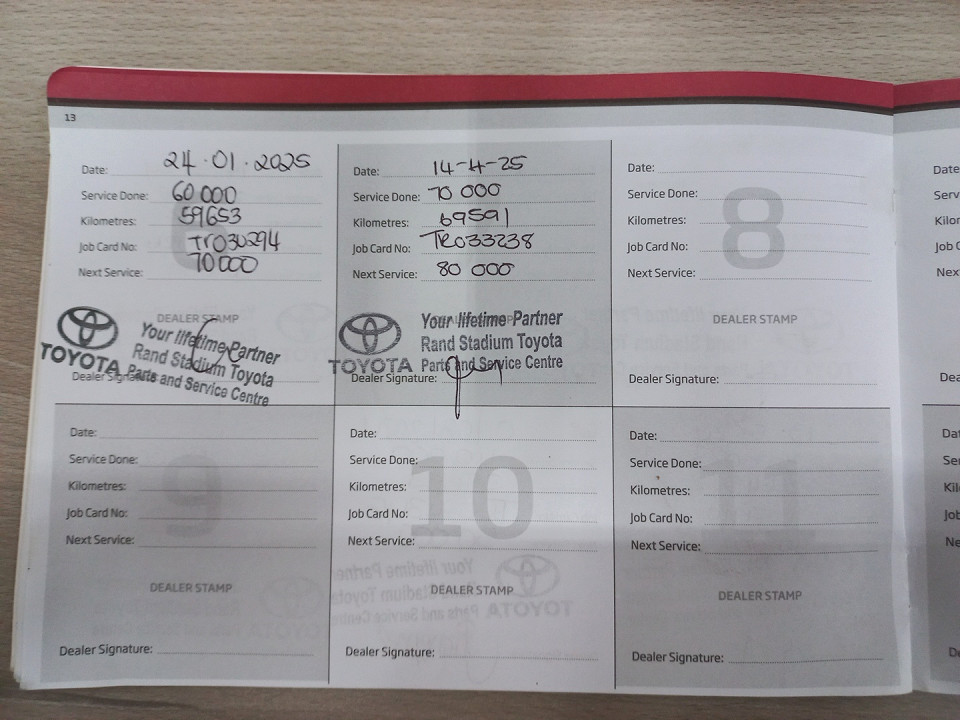 13
Date: 24.01.2025
Service Done: 60 000
Kilometres: 59653
Job Card No: TR030294
Next Service: 70000
DEALER STAMP
TOYOTA
Your lifetime Partner
Rand Stadium Toyota
Parts and Service Centre
Dealer Signature:
Date: 14-4-25
Service Done: 70 000
Kilometres: 69591
Job Card No: TR033238
Next Service: 80 000
TOYOTA
Your lifetime Partner
Rand Stadium Toyota
Parts and Service Centre
Dealer Signature:
8
Date:
Service Done:
Kilometres:
Job Card No:
Next Service:
DEALER STAMP
Dealer Signature:
9
Date:
Service Done:
Kilometres:
Job Card No:
Next Service:
DEALER STAMP
Dealer Signature:
10
Date:
Service Done:
Kilometres:
Job Card No:
Next Service:
DEALER STAMP
Dealer Signature:
11
Date:
Service Done:
Kilometres:
Job Card No:
Next Service:
DEALER STAMP
Dealer Signature: